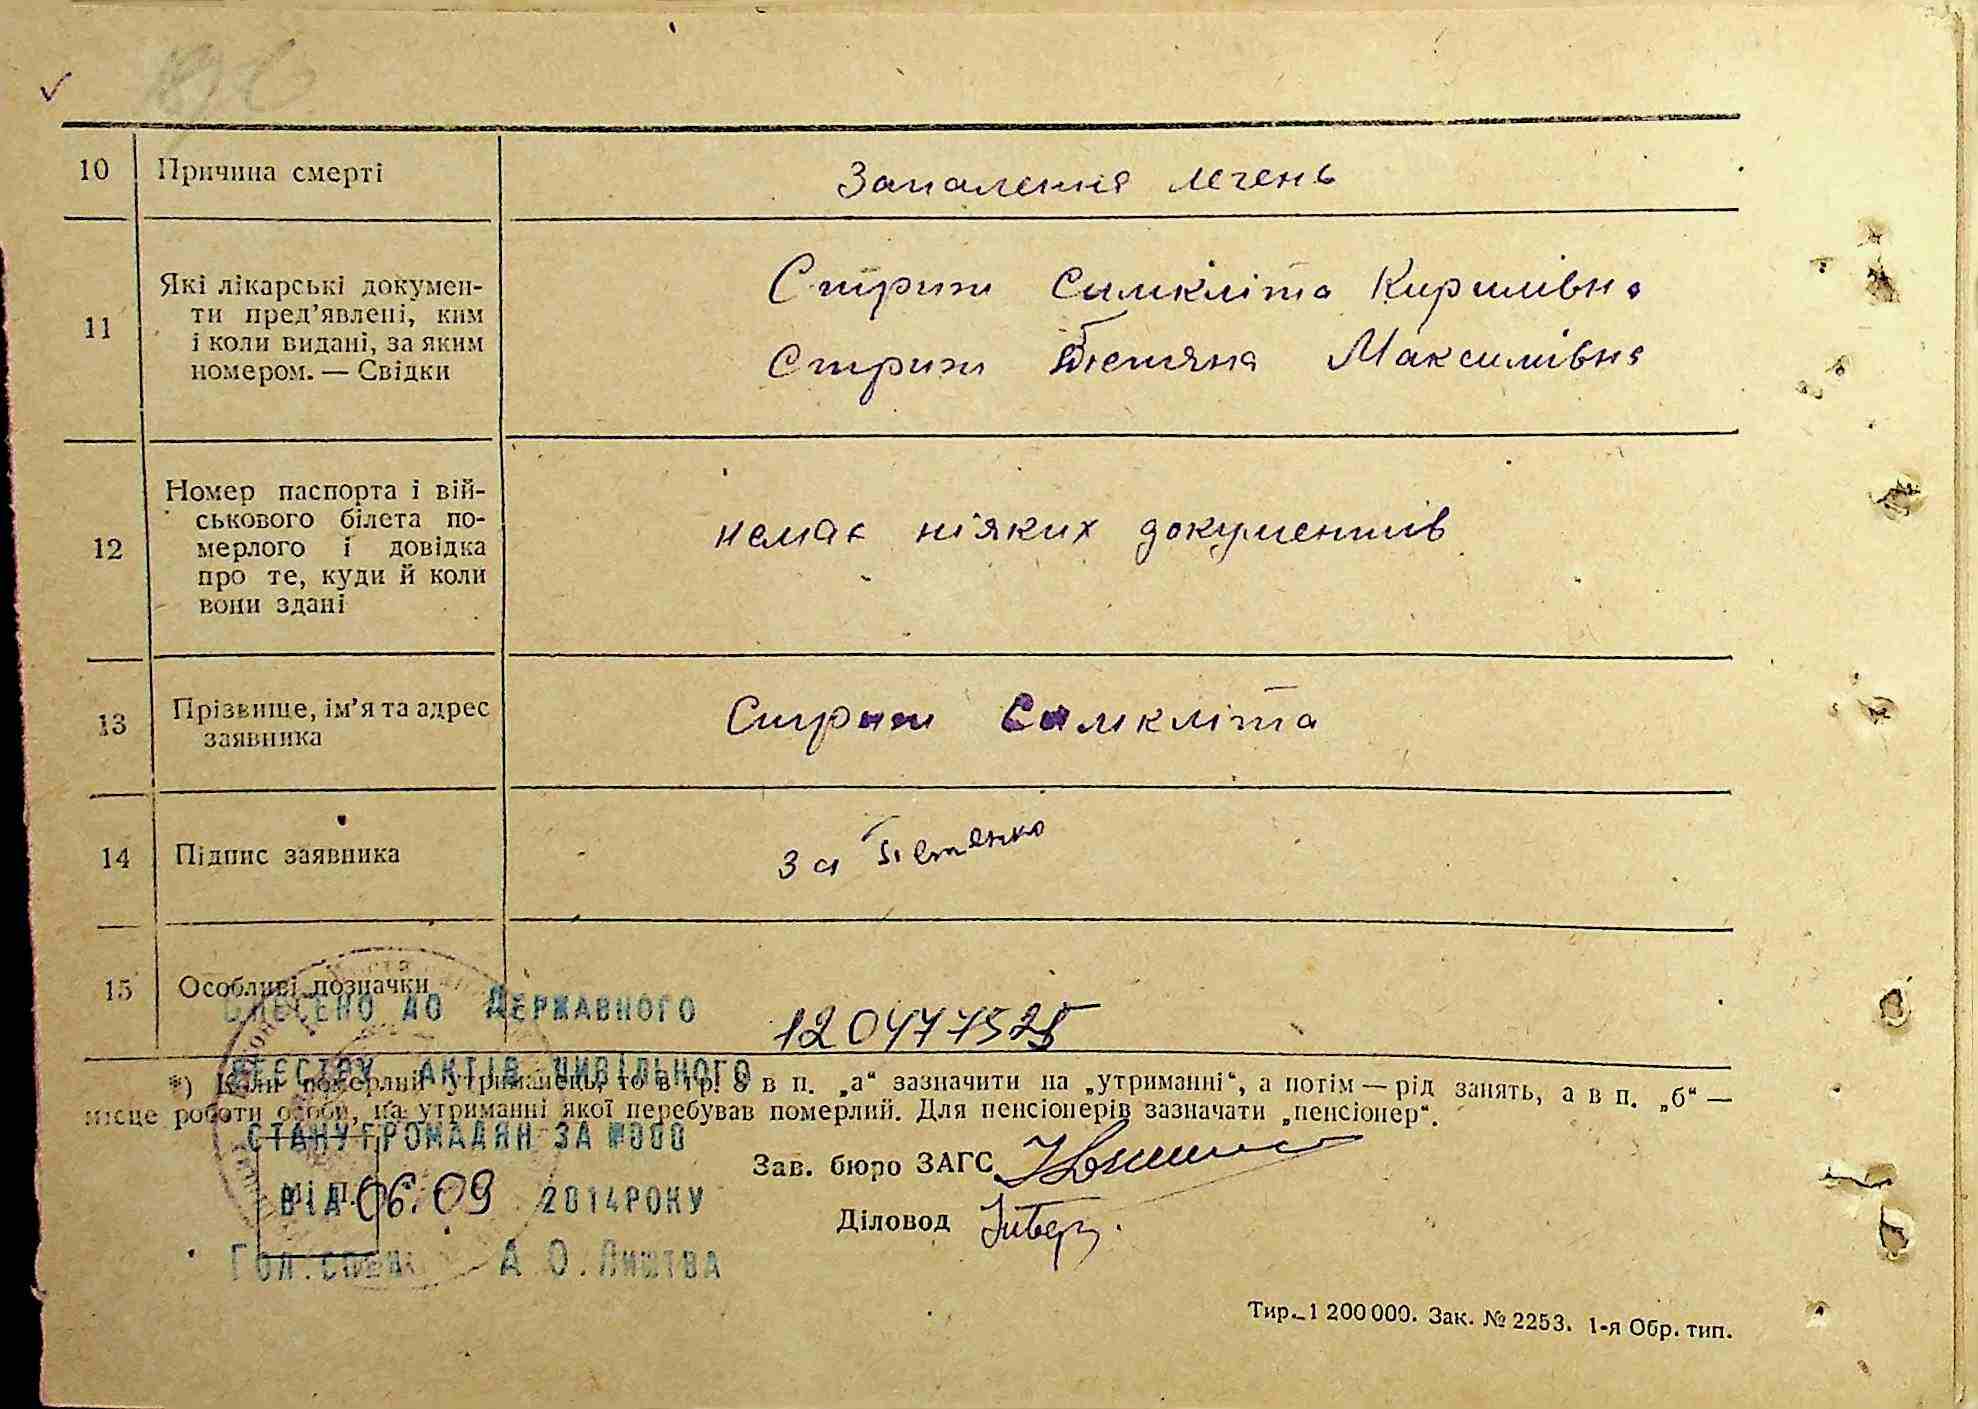 10 Причина смерті Запалення легень
11 Які лікарські докумен-
ти пред’явлені, ким
і коли видані, за яким
номером. — Свідки
Стриж Симкліта Кирилівна
Стриж Тетяна Максимівна
12 Номер паспорта і вій-
ськового білета по-
мерлого і довідка
про те, куди й коли
вони здані
немає ніяких документів
13 Прізвище, ім’я та адрес
заявника
Стриж Симкліта
14 Підпис заявника За
15 Особливі позначки
ДО ДЕРЖАВНОГО
РЕЄСТРУ АКТІВ ЦИВІЛЬНОГО
СТАНУ ГРОМАДЯН ЗА №000
ВІД 06.09 2014РОКУ
ГОЛ.СПЕЦ А.О.ЛИШТВА
*) Коли померлий утриманець, то в гр. 8 в п. „а“ зазначити на „утриманні“, а потім — рід занять, а в п. „б“ —
місце роботи особи, на утриманні якої перебував померлий. Для пенсіонерів зазначати „пенсіонер“.
Зав. бюро ЗАГС
М. П.
Діловод
Тир. 1 200 000. Зак. № 2253. 1-я Обр. тип.